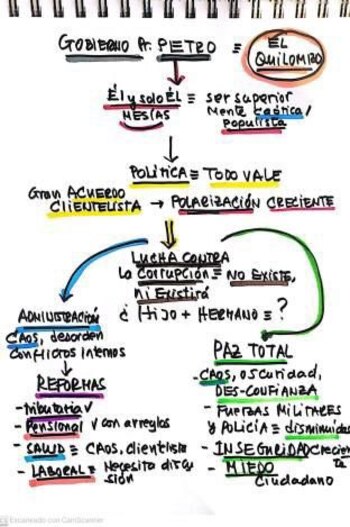 GOBIERNO Pr. PIETRO ≡ EL QUILOMBO
Él y solo ÉL ≡ SER SUPERIOR
MESÍAS
Mente caótica/
populista
POLÍTICA ≡ TODO VALE
Gran ACUERDO
CLIENTELISTA → POLARIZACIÓN CRECIENTE
LUCHA CONTRA
la CORRUPCIÓN ≡ NO EXISTE,
ni EXISTIRÁ
¿ HIJO + HERMANO ≡ ?
ADMINISTRACIÓN
CAOS, desorden
conflictos internos
REFORMAS
- tributaria ✓
- Pensional ✓ con arreglos
- SALUD ≡ CAOS, clientelista
- LABORAL ≡ Necesita discu
sión
PAZ TOTAL
- CAOS, oscuridad,
DES-CONFIANZA
- FUERZAS MILITARES
y POLICÍA ≡ disminuidas
- INSEGURIDAD creciente
- MIEDO
ciudadano
Escaneado con CamScanner